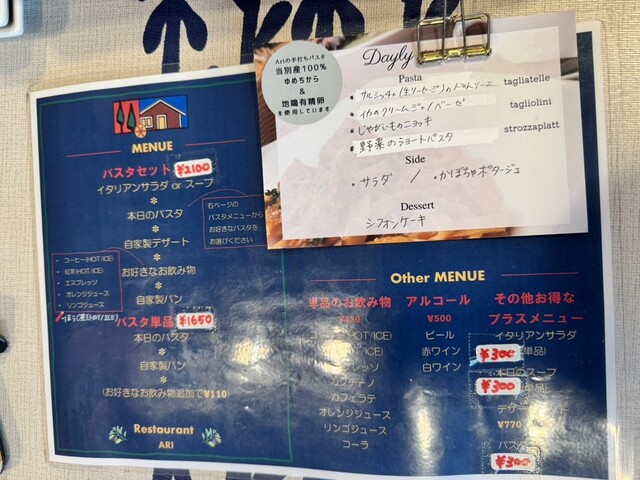 MENUE
パスタセット ¥2100
イタリアンサラダ or スープ
＊
本日のパスタ
＊
自家製デザート
＊
お好きなお飲み物
＊
自家製パン
右ページの
パスタメニューから
お好きなパスタを
お選びください
・ コーヒー(HOT/ICE)
・ 紅茶(HOT/ICE)
・ エスプレッソ
・ オレンジジュース
・ リンゴジュース
パスタ単品 ¥1650
本日のパスタ
＊
自家製パン
＊
(お好きなお飲み物追加で¥110)
Restaurant
ARI
Ariの手打ちパスタ
当別産100%
ゆめちから
&
地鶏有精卵
を使用しています
Dayly
Pasta
・サルシッチャ(生ソーセージ)のトマトソース tagliatelle
・イカのクリームジェノベーゼ tagliolini
・じゃがいものニョッキ
・野菜のショートパスタ strozzaplatt
Side
・サラダ / ・かぼちゃポタージュ
Dessert
シフォンケーキ
Other MENUE
単品のお飲み物
¥450
コーヒー(HOT/ICE)
カプチーノ
カフェラテ
オレンジジュース
リンゴジュース
コーラ
アルコール
¥500
ビール
赤ワイン
白ワイン
その他お得な
プラスメニュー
イタリアンサラダ
¥300 単品)
本日のスープ
¥300 単品)
デザート
¥770
¥300